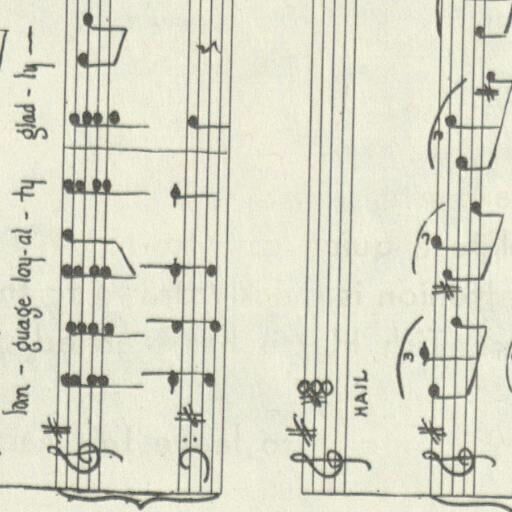 lan - guage loy-al - ty glad - ly —
HAIL
3
3
3